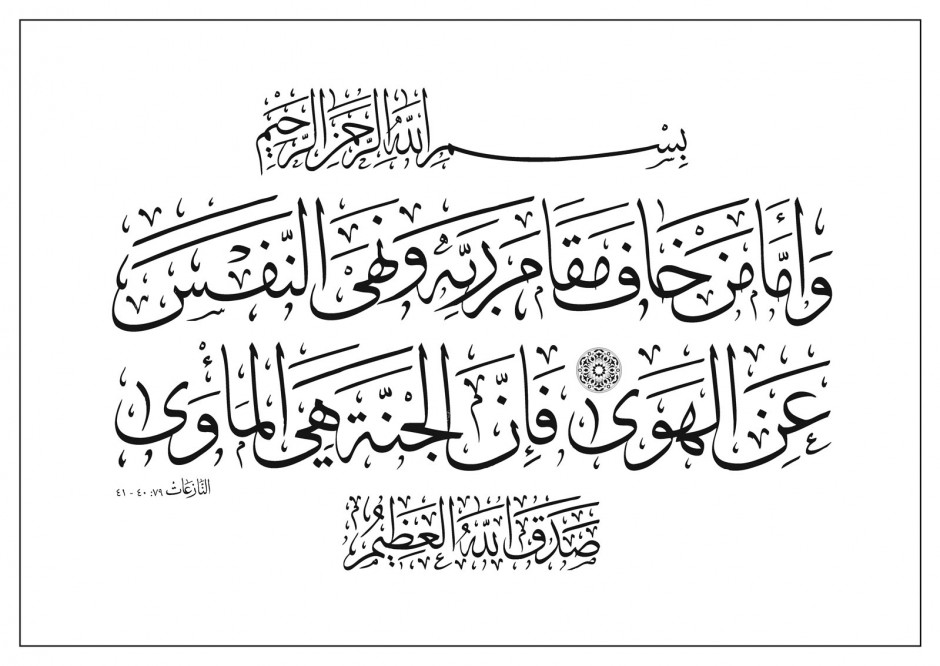 بِسْمِ اللهِ الرَّحْمٰنِ الرَّحِيْمِ
وَأَمَّا مَنْ خَافَ مَقَامَ رَبِّهِ وَنَهَى النَّفْسَ
عَنِ الْهَوَى فَإِنَّ الْجَنَّةَ هِيَ الْمَأْوَى
النَّازِعَاتْ ٧٩: ٤٠ - ٤١
صَدَقَ اللهُ الْعَظِيْمُ